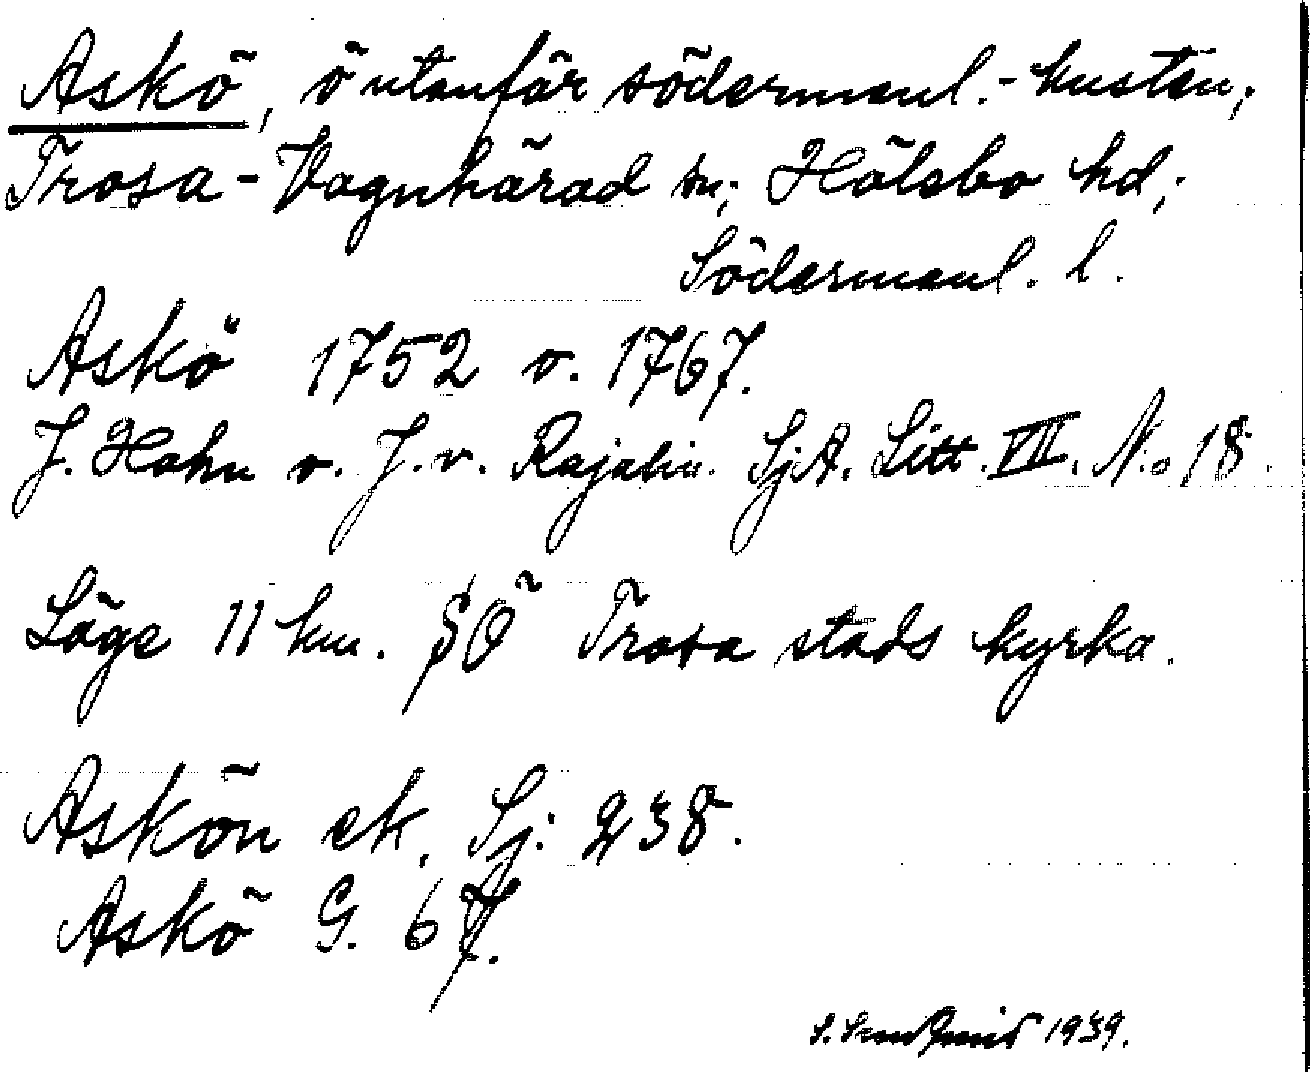 Askö, ö utanför södermanl.-kusten;
Trosa-Vagnhärad sn; Hölebo hd;
Södermanl. l.
Askö 1752 o. 1767.
J. Hahn o. J. v. Rajalin. SjA. Litt. VII. No 18.
Läge 11 km. SÖ Trosa stads kyrka.
Askön ek. Sj. 238.
Askö G. 67.
1939.